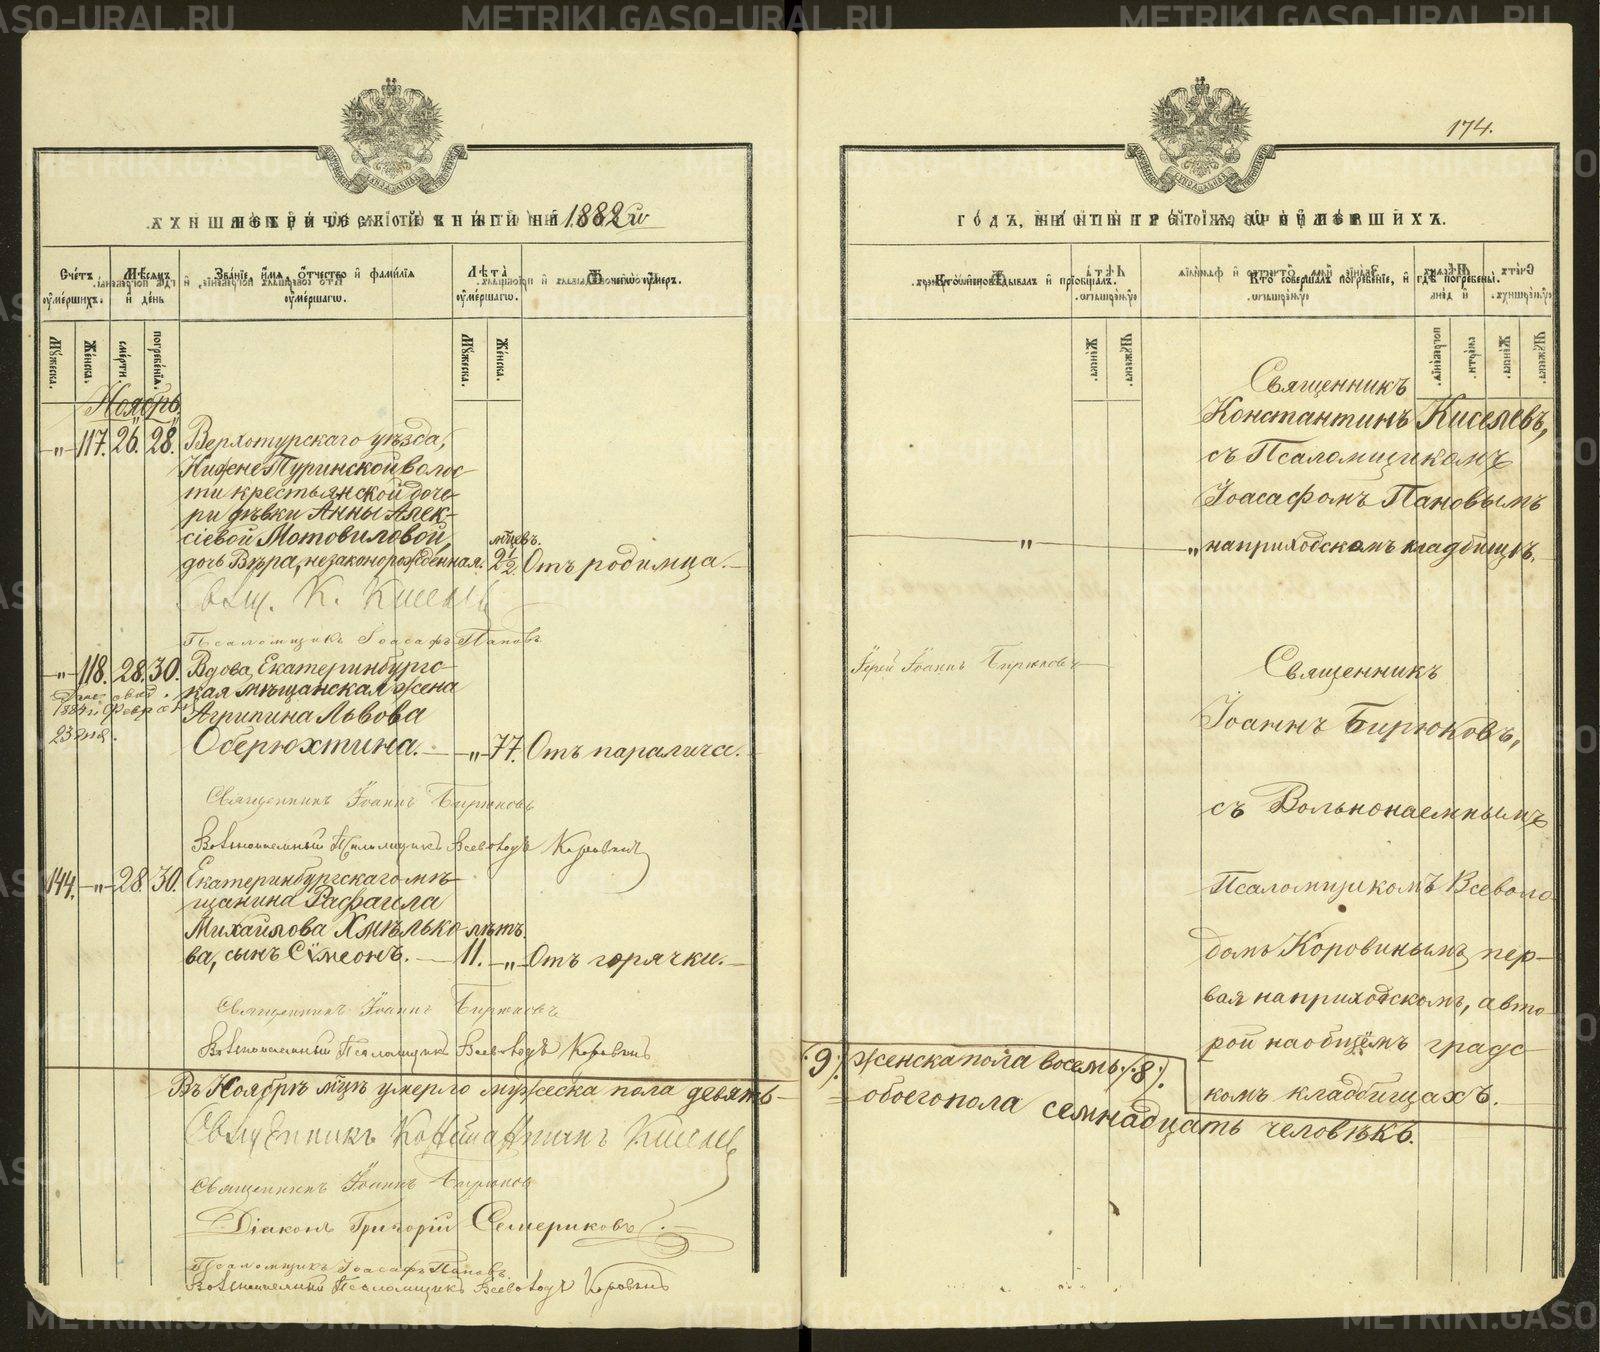 METRIKI.GASO-URAL.RU
174.
МЕТРИЧЕСКОЙ КНИГИ НА 1882й
ГОДЪ, ЧАСТЬ ТРЕТІЯ, О УМЕРШИХЪ.
Счетъ умершихъ.
Мѣсяцъ и день
Званіе, имя, отчество и фамилія умершаго.
Лѣта умершаго.
Отъ чего умеръ.
Кто исповѣдывалъ и пріобщалъ.
Кто совершалъ погребеніе, и гдѣ погребены.
Мужеска.
Женска.
смерти
погребенія.
Мужеска.
Женска.
Ноябрь
„ 117. 26. 28. Верхотурскаго уѣзда,
Нижне Туринской волос
ти крестьянской доче
ри дѣвки Анны Алек-
сіевой Мотовиловой,
дочь Вѣра, незаконорожденная.
мцевъ.
2½. Отъ родимца.
Свящ. К. Киселевъ
Псаломщикъ Іоасафъ Пановъ
Священникъ
Константинъ Киселевъ,
съ Псаломщикомъ
Іоасафомъ Пановымъ
на приходскомъ кладбищѣ.
„ 118. 28. 30. Вдова, Екатеринбургс-
кая мѣщанская жена
Агрипина Львова
Оберюхтина. „ 77. Отъ паралича.
1884 Февраля
23 дня.
Священникъ Іоаннъ Бирюковъ
Вольнонаемный Псаломщикъ Всеволодъ Коровинъ
Іерей Іоаннъ Бирюковъ
Священникъ
Іоаннъ Бирюковъ,
съ Вольнонаемнымъ
Псаломщикомъ Всеволо
домъ Коровинымъ, пер-
вая на приходскомъ, а вто
рой на общемъ градс
комъ кладбищахъ.
144. „ 28 30. Екатеринбургскаго мѣ-
щанина Рафаила
Михайлова Хмѣлько
ва, сынъ Сімеонъ.
лѣтъ.
11. „ Отъ горячки.
Священникъ Іоаннъ Бирюковъ
Вольнонаемный Псаломщикъ Всеволодъ Коровинъ
Въ Ноябрѣ мцѣ умерло мужеска пола девять
(9) женска пола восемь (8).
обоего пола семнадцать человѣкъ.
Священникъ Константинъ Киселевъ
Священникъ Іоаннъ Бирюковъ
Діаконъ Григорій Семериковъ.
Псаломщикъ Іоасафъ Пановъ
Вольнонаемный Псаломщикъ Всеволодъ Коровинъ